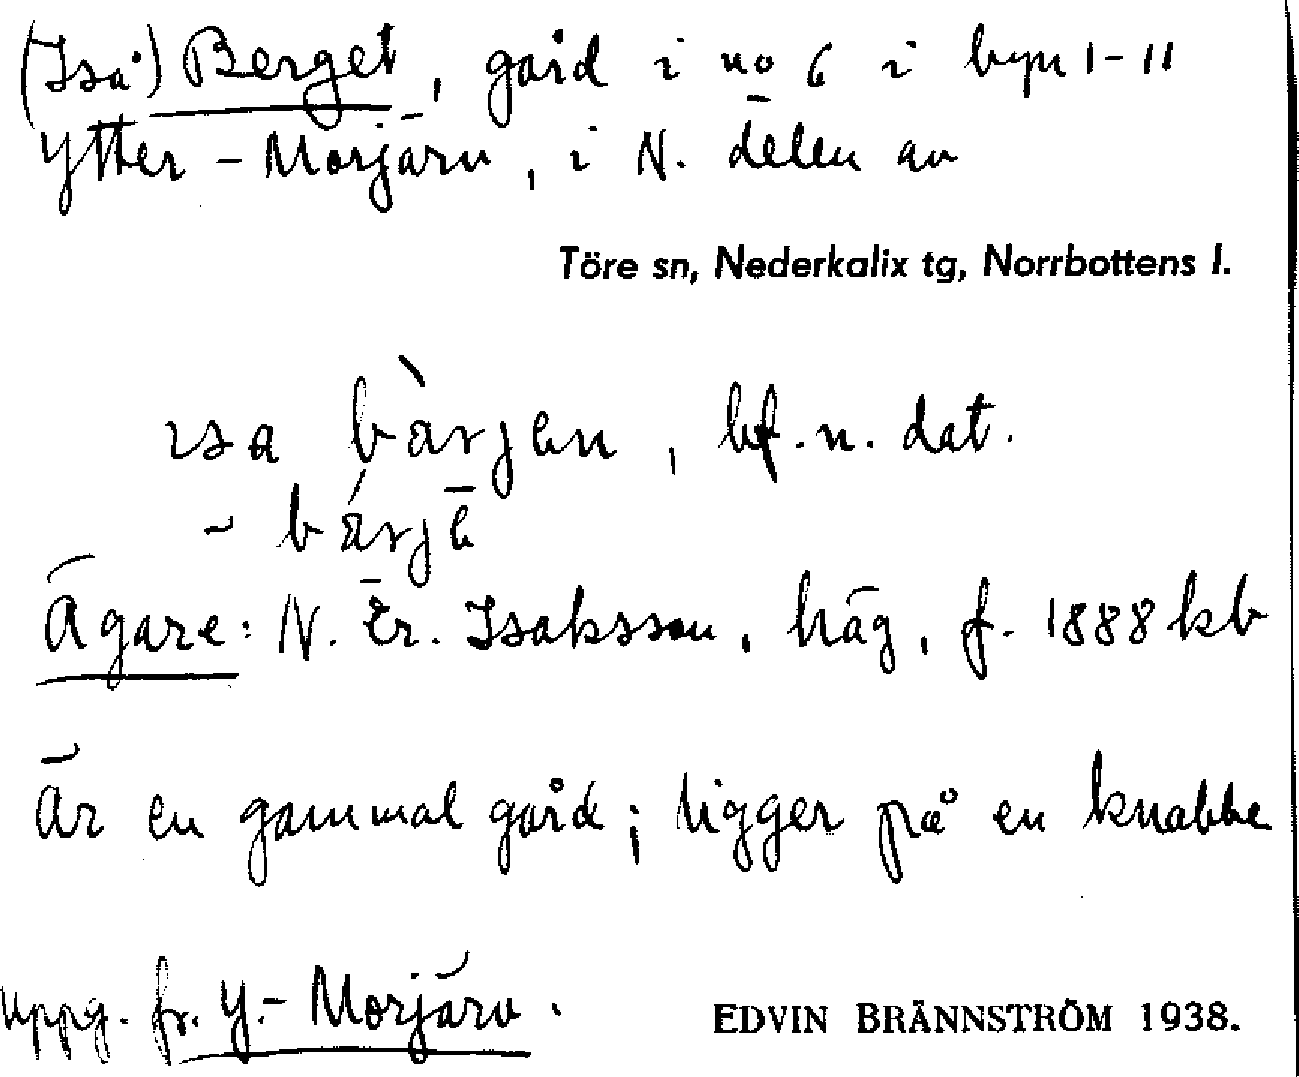 (Iså) Berget, gård i no 6 i byn 1-11
Ytter-Morjärv, i N. delen av
Töre sn, Nederkalix tg, Norrbottens l.
ısa bàrjen, bf. n. dat.
- bárjē
Ägare: N. Er. Isaksson, häg, f. 1888 kb
Är en gammal gård; ligger på en knabbe
uppg. fr. Y.-Morjärv.
EDVIN BRÄNNSTRÖM 1938.